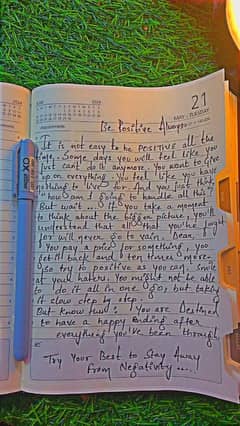 2024
21
MAY - TUESDAY
Be Positive Always
It is not easy to be POSITIVE all the
time. Some days you will feel like you
just can't do it anymore. You want to give
up on everything. You feel like you have
nothing to live for. And you just think
"how am I going to handle all this"
But wait... If You take a moment
to think about the big picture, you'll
understand that all that you've fought
for will never go to vain. Dear,
You pay a price for something, you
get it back and ten times more.
So try to positive as you can. Smile
at your haters. You might not be able
to do it all in one go, but taking
it slow step by step.
But know this: You are Destined
to have a happy ending after
everything you've been through.
Try Your Best to Stay Away
From Negativity....
OX